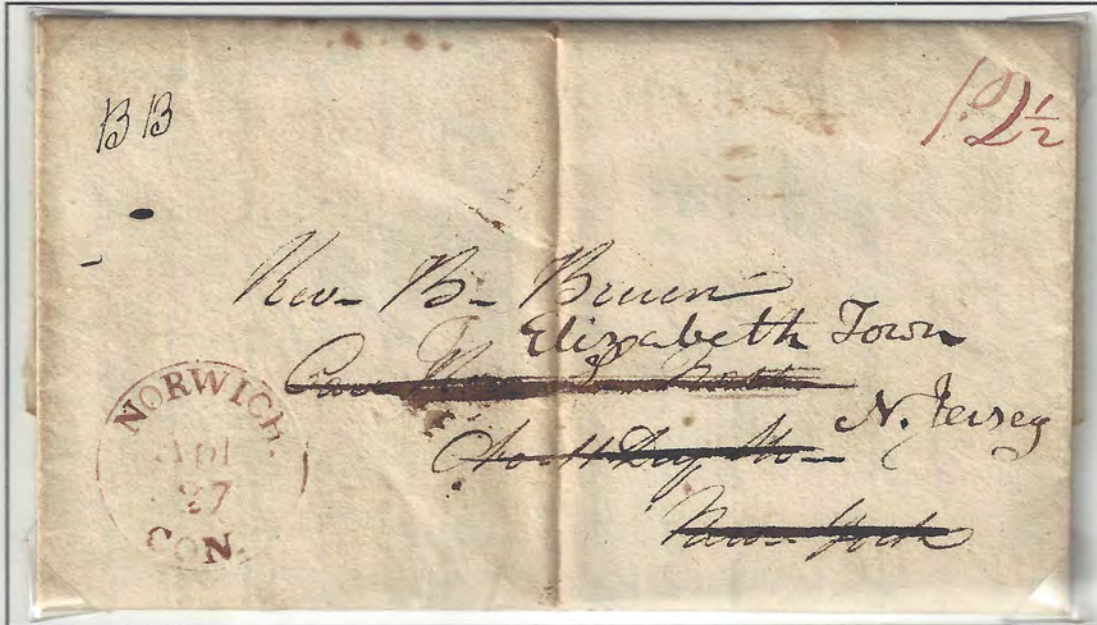 BB
12½
Rev- B- Bruen
Elizabeth Town
N. Jersey
No 11 Dey St-
New York
NORWICH
Apl
27
CON.